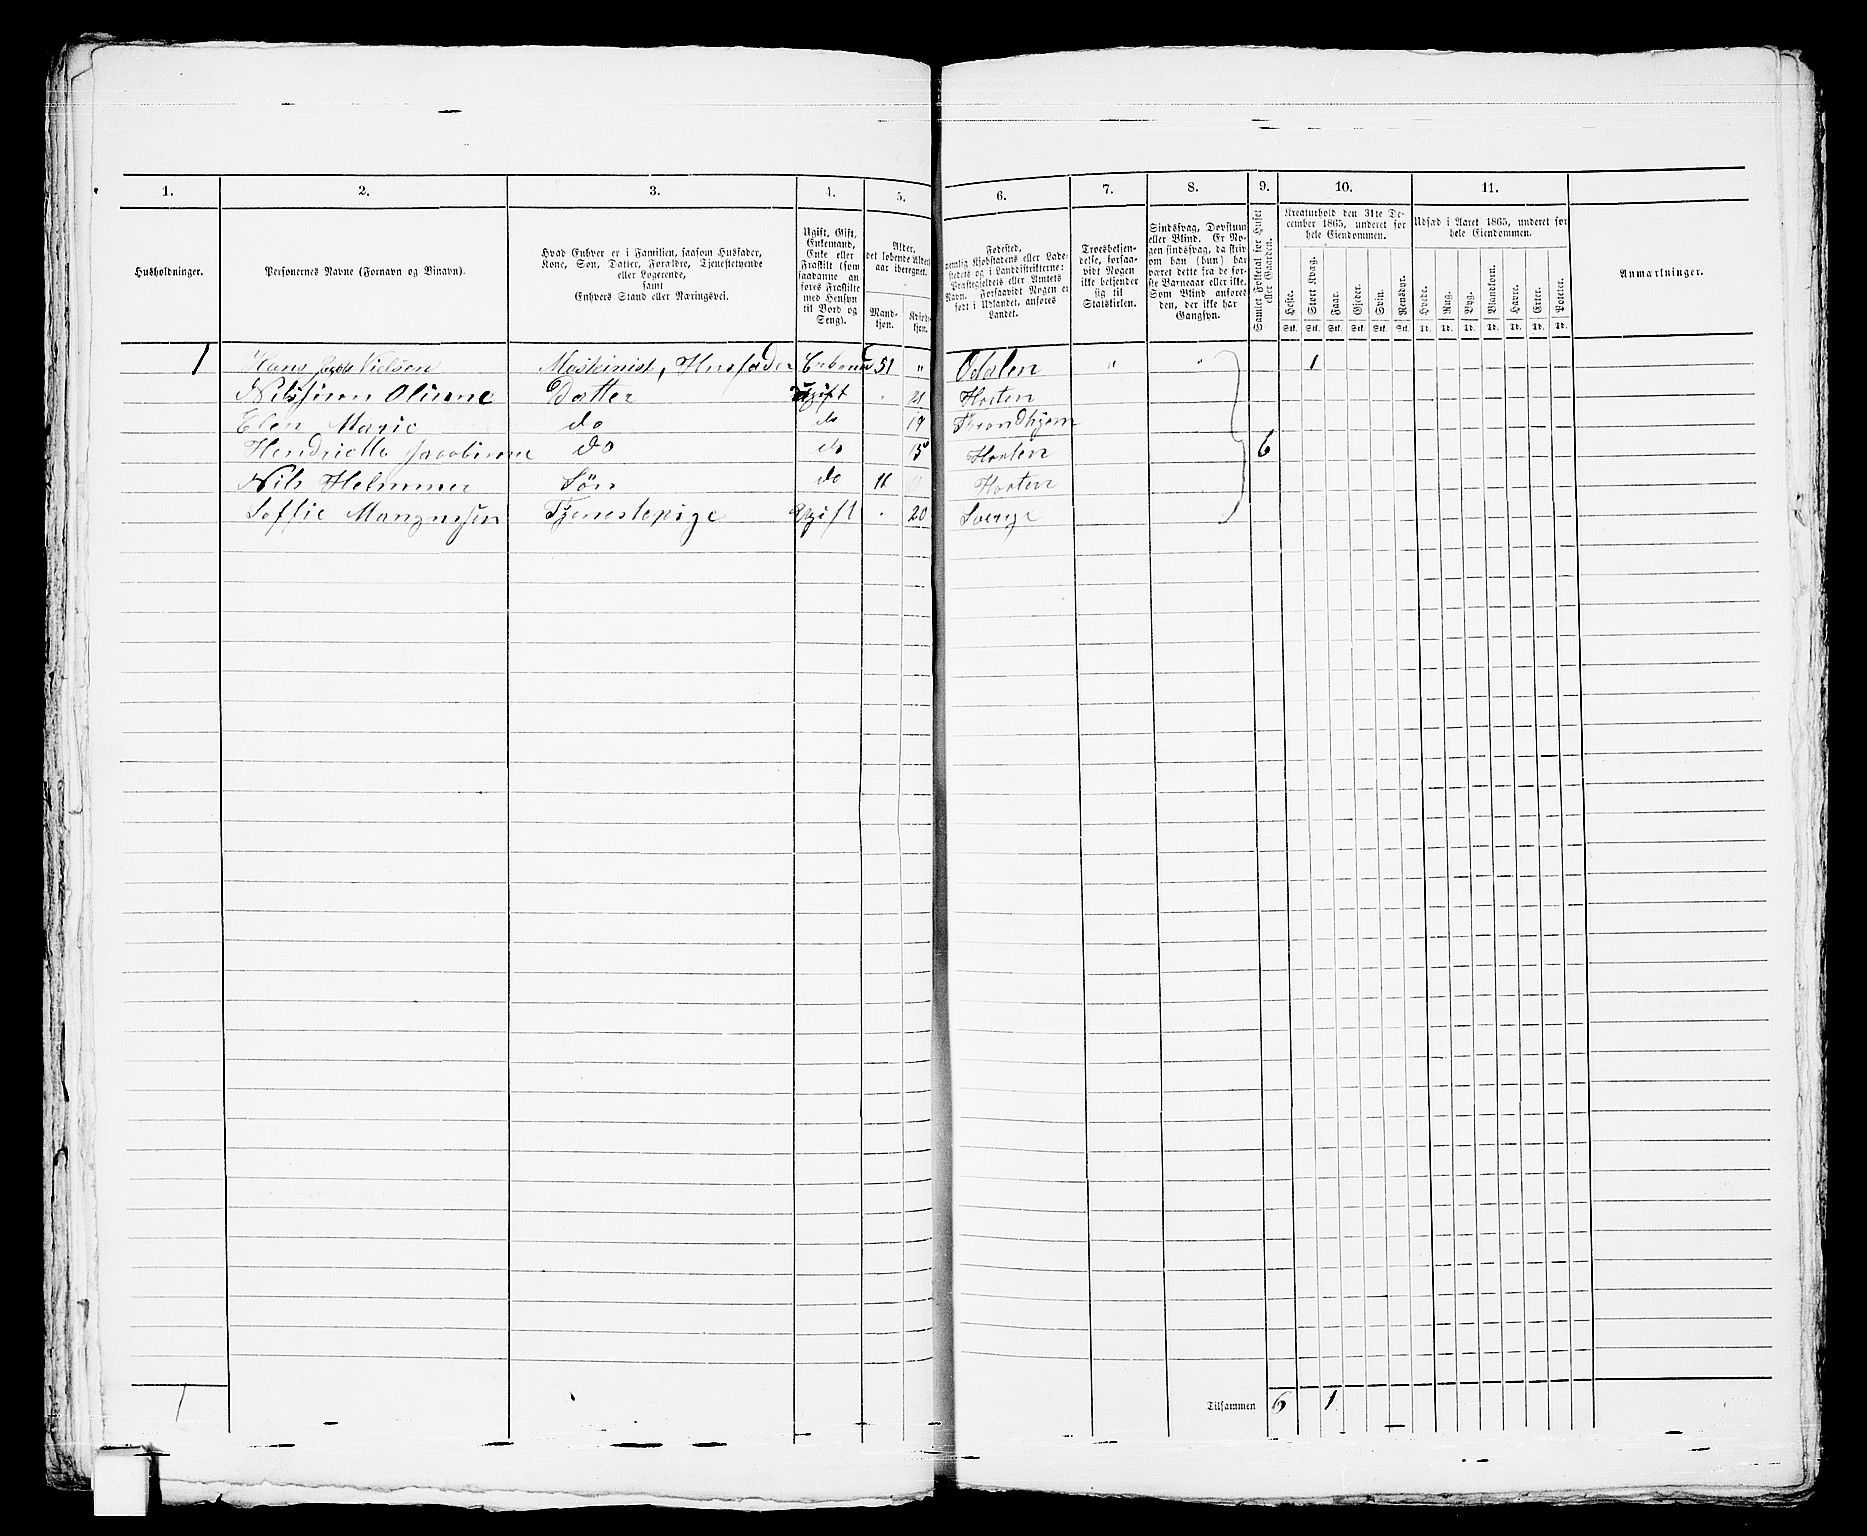 1. 2. 3. 4. 5. 6. 7. 8. 9. 10. 11.
Husholdninger.
Personernes Navne (Fornavn og Binavn).
Hvad Enhver er i Familien, saasom Husfader,
Kone, Søn, Datter, Forældre, Tjenestetyende
eller Logerende,
samt
Enhvers Stand eller Næringsvei.
Ugift, Gift,
Enkemand,
Enke eller
Fraskilt (som
saadanne an-
føres Fraskilte
med Hensyn
til Bord og
Seng).
Alder,
det løbende Alders-
aar iberegnet.
Mand-
kjøn.
Kvind-
kjøn.
Fødested,
nemlig Kjøbstadens eller Lade-
stedets og i Landdistrikterne:
Præstegjeldets eller Amtets
Navn. Forsaavidt Nogen er
født i Udlandet, anføres
Landet.
Troesbekjen-
delse, forsaa-
vidt Nogen
ikke bekjender
sig til
Statskirken.
Sindssvag, Døvstum
eller Blind. Er No-
gen sindssvag, da skriv
om han (hun) har
været dette fra de før-
ste Barneaar eller ikke.
Som Blind anføres
den, der ikke har
Gangsyn.
Samlet Folketal for Huset
eller Gaarden.
Kreaturhold den 31te De-
cember 1865, underet for
hele Eiendommen.
Heste. Stort Kvæg. Faar. Gjeder. Svin. Rensdyr.
Stk. Stk. Stk. Stk. Stk. Stk.
Udsæd i Aaret 1865, underet for
hele Eiendommen.
Hvede. Rug. Byg. Blandkorn. Havre. Erter. Poteter.
Td. Td. Td. Td. Td. Td. Td.
Anmærkninger.
1 Hans Jacob Nielsen Maskinist, Husfader 51 " Odalen " " 1
Olinne Datter Ugift . 21 Horten
Elen Marie do do 19 Trondhjem
Hendriette Jacobinne do do 15 Horten 6
Nils Helmmer Søn do 11 Horten
Soffie Mangnussen Tjenestepige Ugift . 20 Sverge
1 Tilsammen 6 1